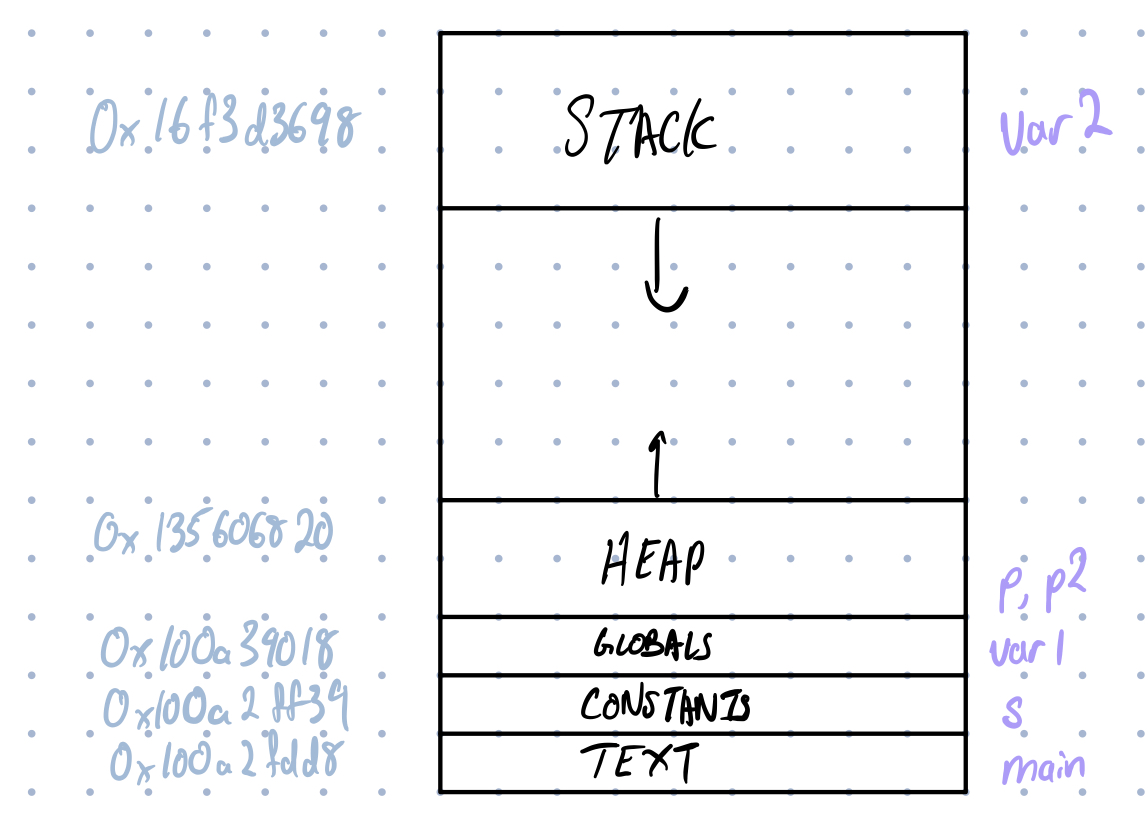 0x16f3d3698 STACK var2
0x135606820 HEAP p, p2
0x100a39018 GLOBALS var1
0x100a2ff34 CONSTANTS s
0x100a2fdd8 TEXT main